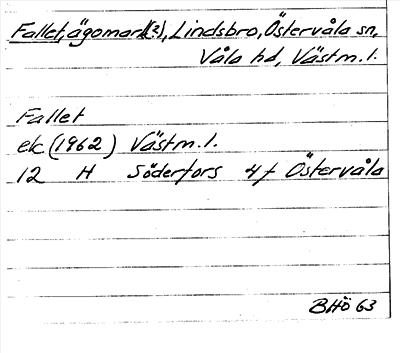 Fallet, ägomark(?), Lindsbro, Östervåla sn,
Våla hd, Västm.l.
Fallet
ek (1962) Västm.l.
12 H Söderfors 4f Östervåla
BHÖ 63